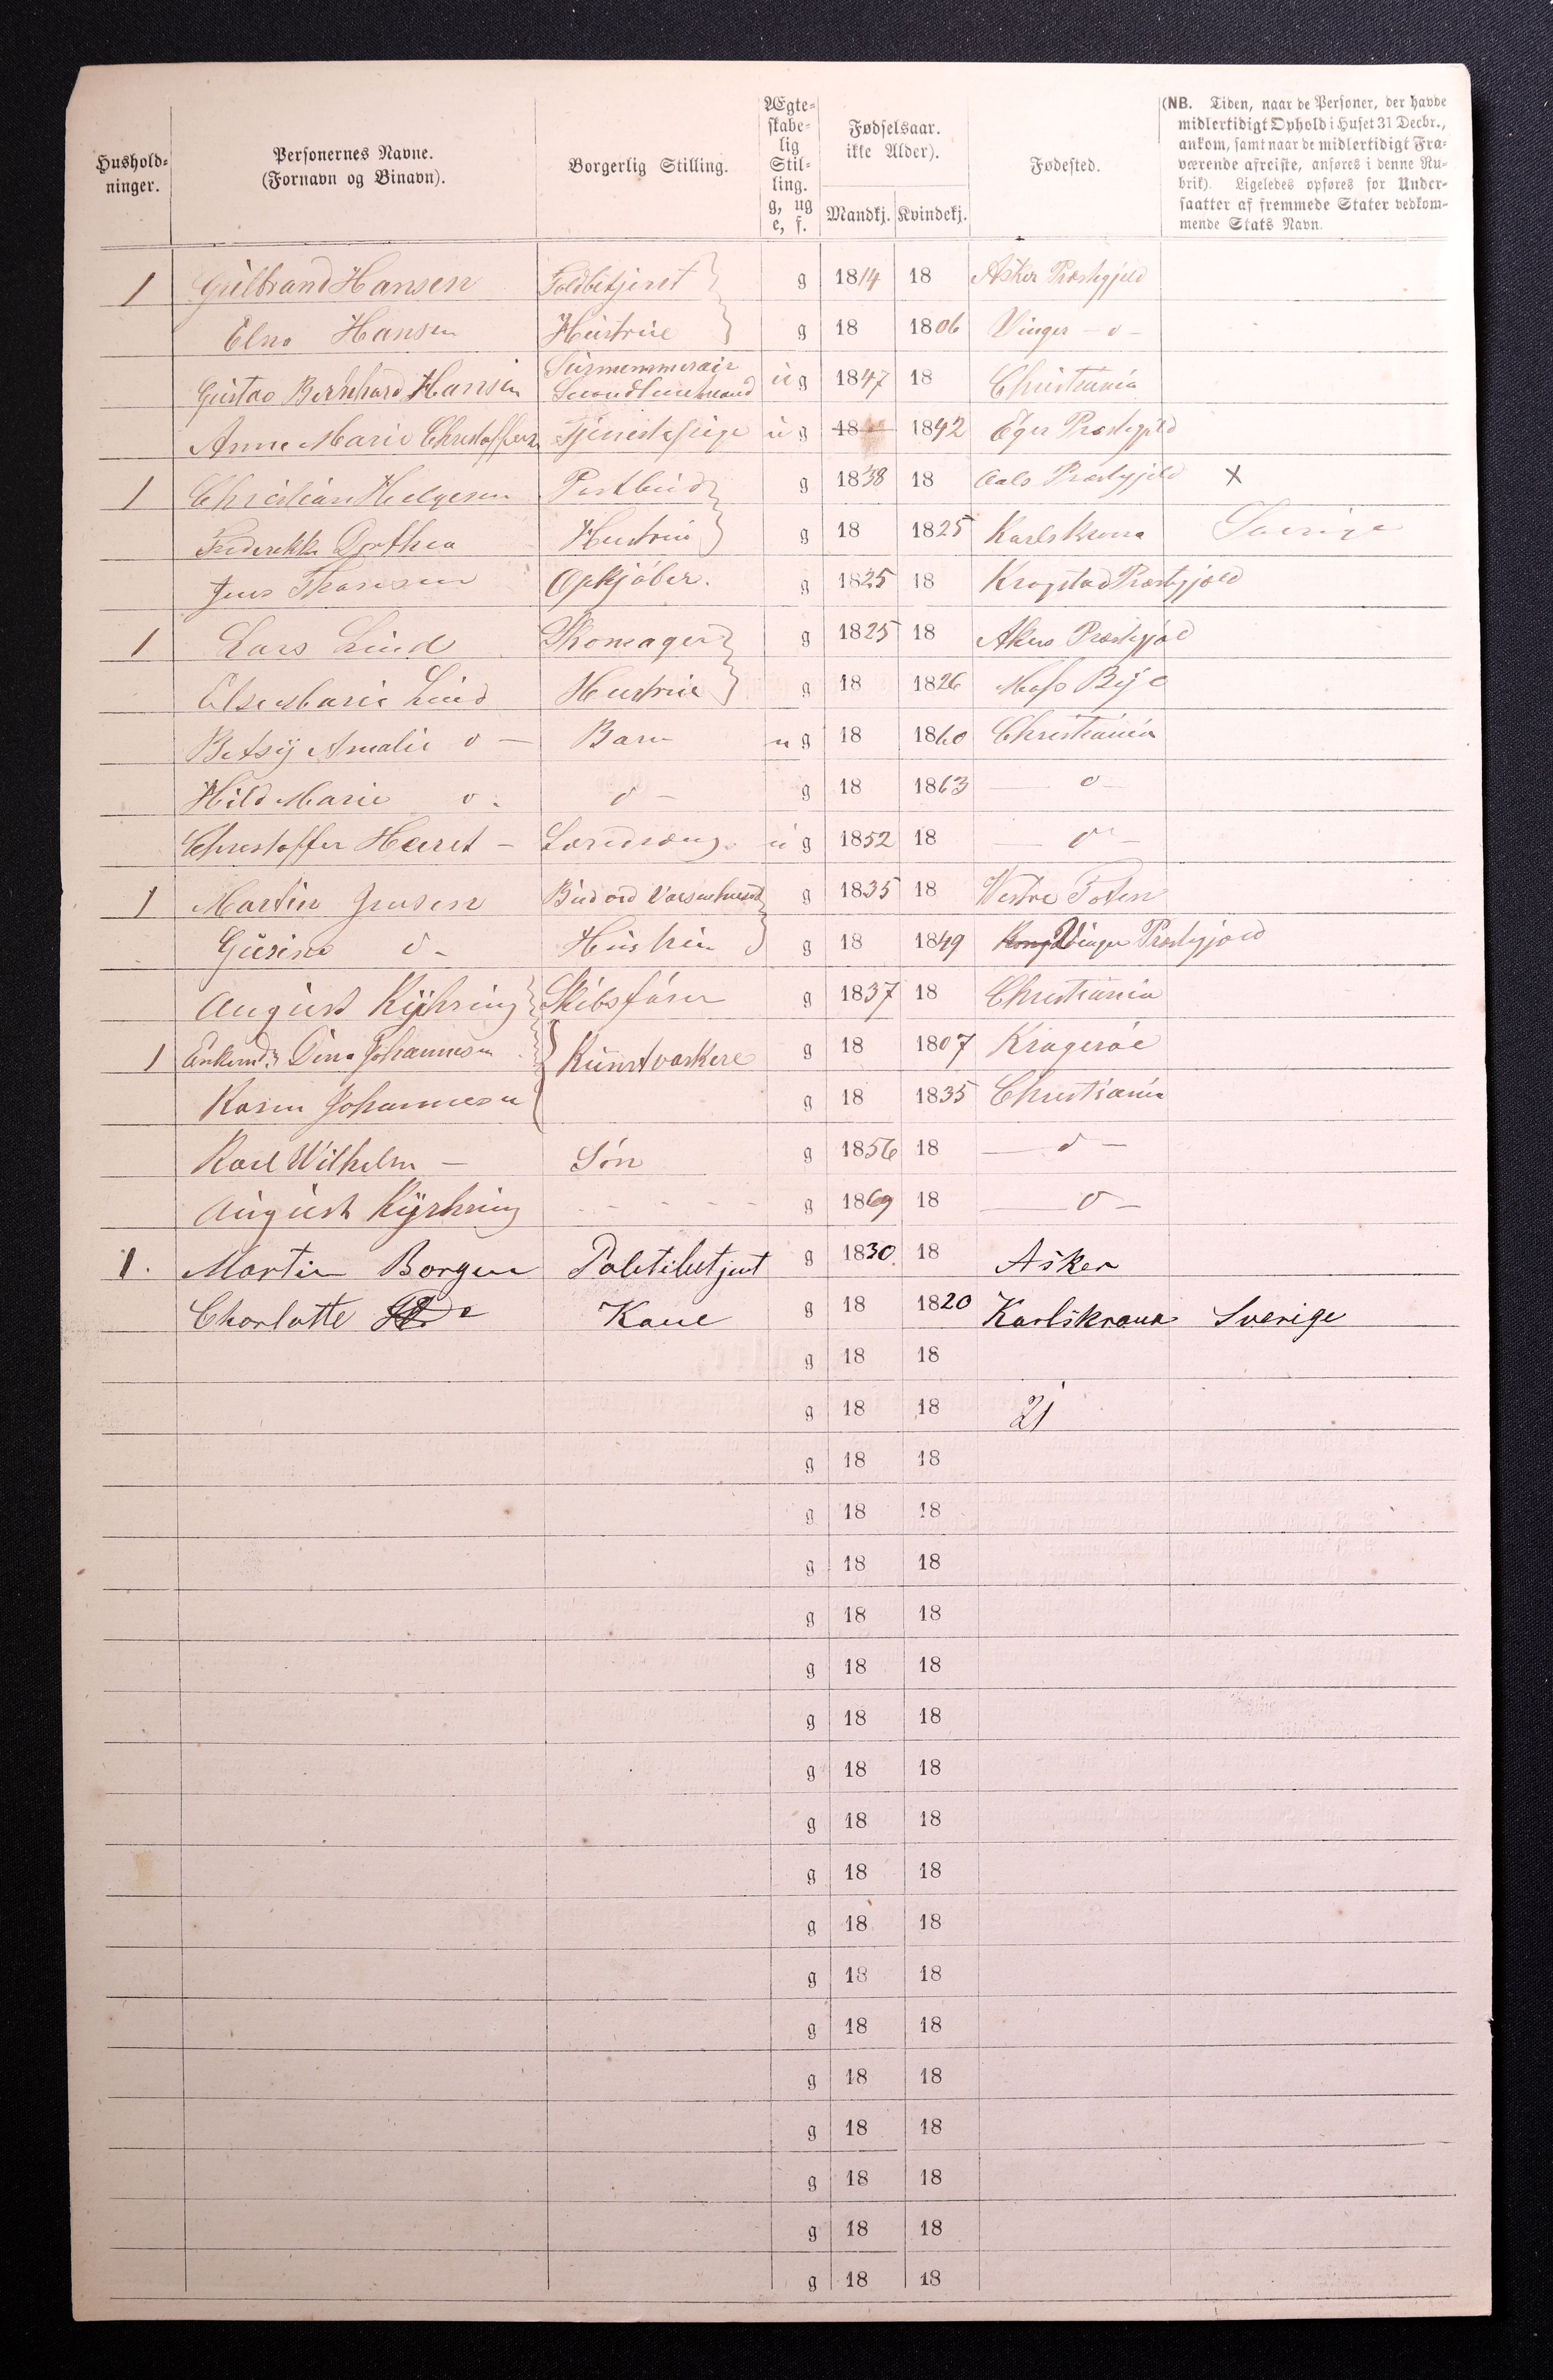 Hushold-
ninger.
Personernes Navne.
(Fornavn og Binavn).
Borgerlig Stilling.
Ægte-
skabe-
lig
Stil-
ling.
g, ug
e, f.
Fødselsaar.
ikke Alder).
Mandkj. Kvindekj.
Fødested.
(NB. Tiden, naar de Personer, der havde
midlertidigt Ophold i Huset 31 Decbr.,
ankom, samt naar de midlertidigt Fra-
værende afreiste, anføres i denne Ru-
brik). Ligeledes opføres for Under-
saatter af fremmede Stater vedkom-
mende Stats Navn.
1 Gulbrand Hansen Toldbetjent g 1814 18 Asker Præstegjeld
Elna Hansen Hustrue g 18 1806 Vinger - o -
Gustav Bernhard Hansen Surnummerair Secondlieutnand ug 1847 18 Christiania
Anne Marie Christoffers Tjenestepige ug 18 1842 Eger Præstegjeld
1 Christian Helgesen Postbud g 1838 18 Aals Præstegjeld X
Frederikke Dorthea Hustrue g 18 1825 Karlskrona Sverige
Jens Opkjøber. g 1825 18 Krogstad Præstegjeld
1 Lars Lind Skomager g 1825 18 Akers Præstegjæld
Else Marie Lind Hustrue g 18 1826 Moss Bye
Betsy Amalie o - Barn ug 18 1860 Christiania
Hild Marie o. o - g 18 1863 - o -
Christoffer - ug 1852 18 - o -
1 Martin Jensen Bud ved g 1835 18 Vestre Toten
Gurine o - Hustrue g 18 1849 Vinger Præstegjæld
August Kyhring Skibsfører g 1837 18 Christiania
1 Enkemd. Dina Johannesen Kunstvaskere g 18 1807 Kragerøe
Karen Johannesen g 18 1835 Christiania
Karl Wilhelm - Søn g 1856 18 - o -
August Kyhring - - - - g 1869 18 - o -
1. Martin Borgen Politibetjent g 1830 18 Asker
Charlotte Kone g 18 1820 Karlskrona Sverige
g 18 18
g 18 18 21
g 18 18
g 18 18
g 18 18
g 18 18
g 18 18
g 18 18
g 18 18
g 18 18
g 18 18
g 18 18
g 18 18
g 18 18
g 18 18
g 18 18
g 18 18
g 18 18
g 18 18